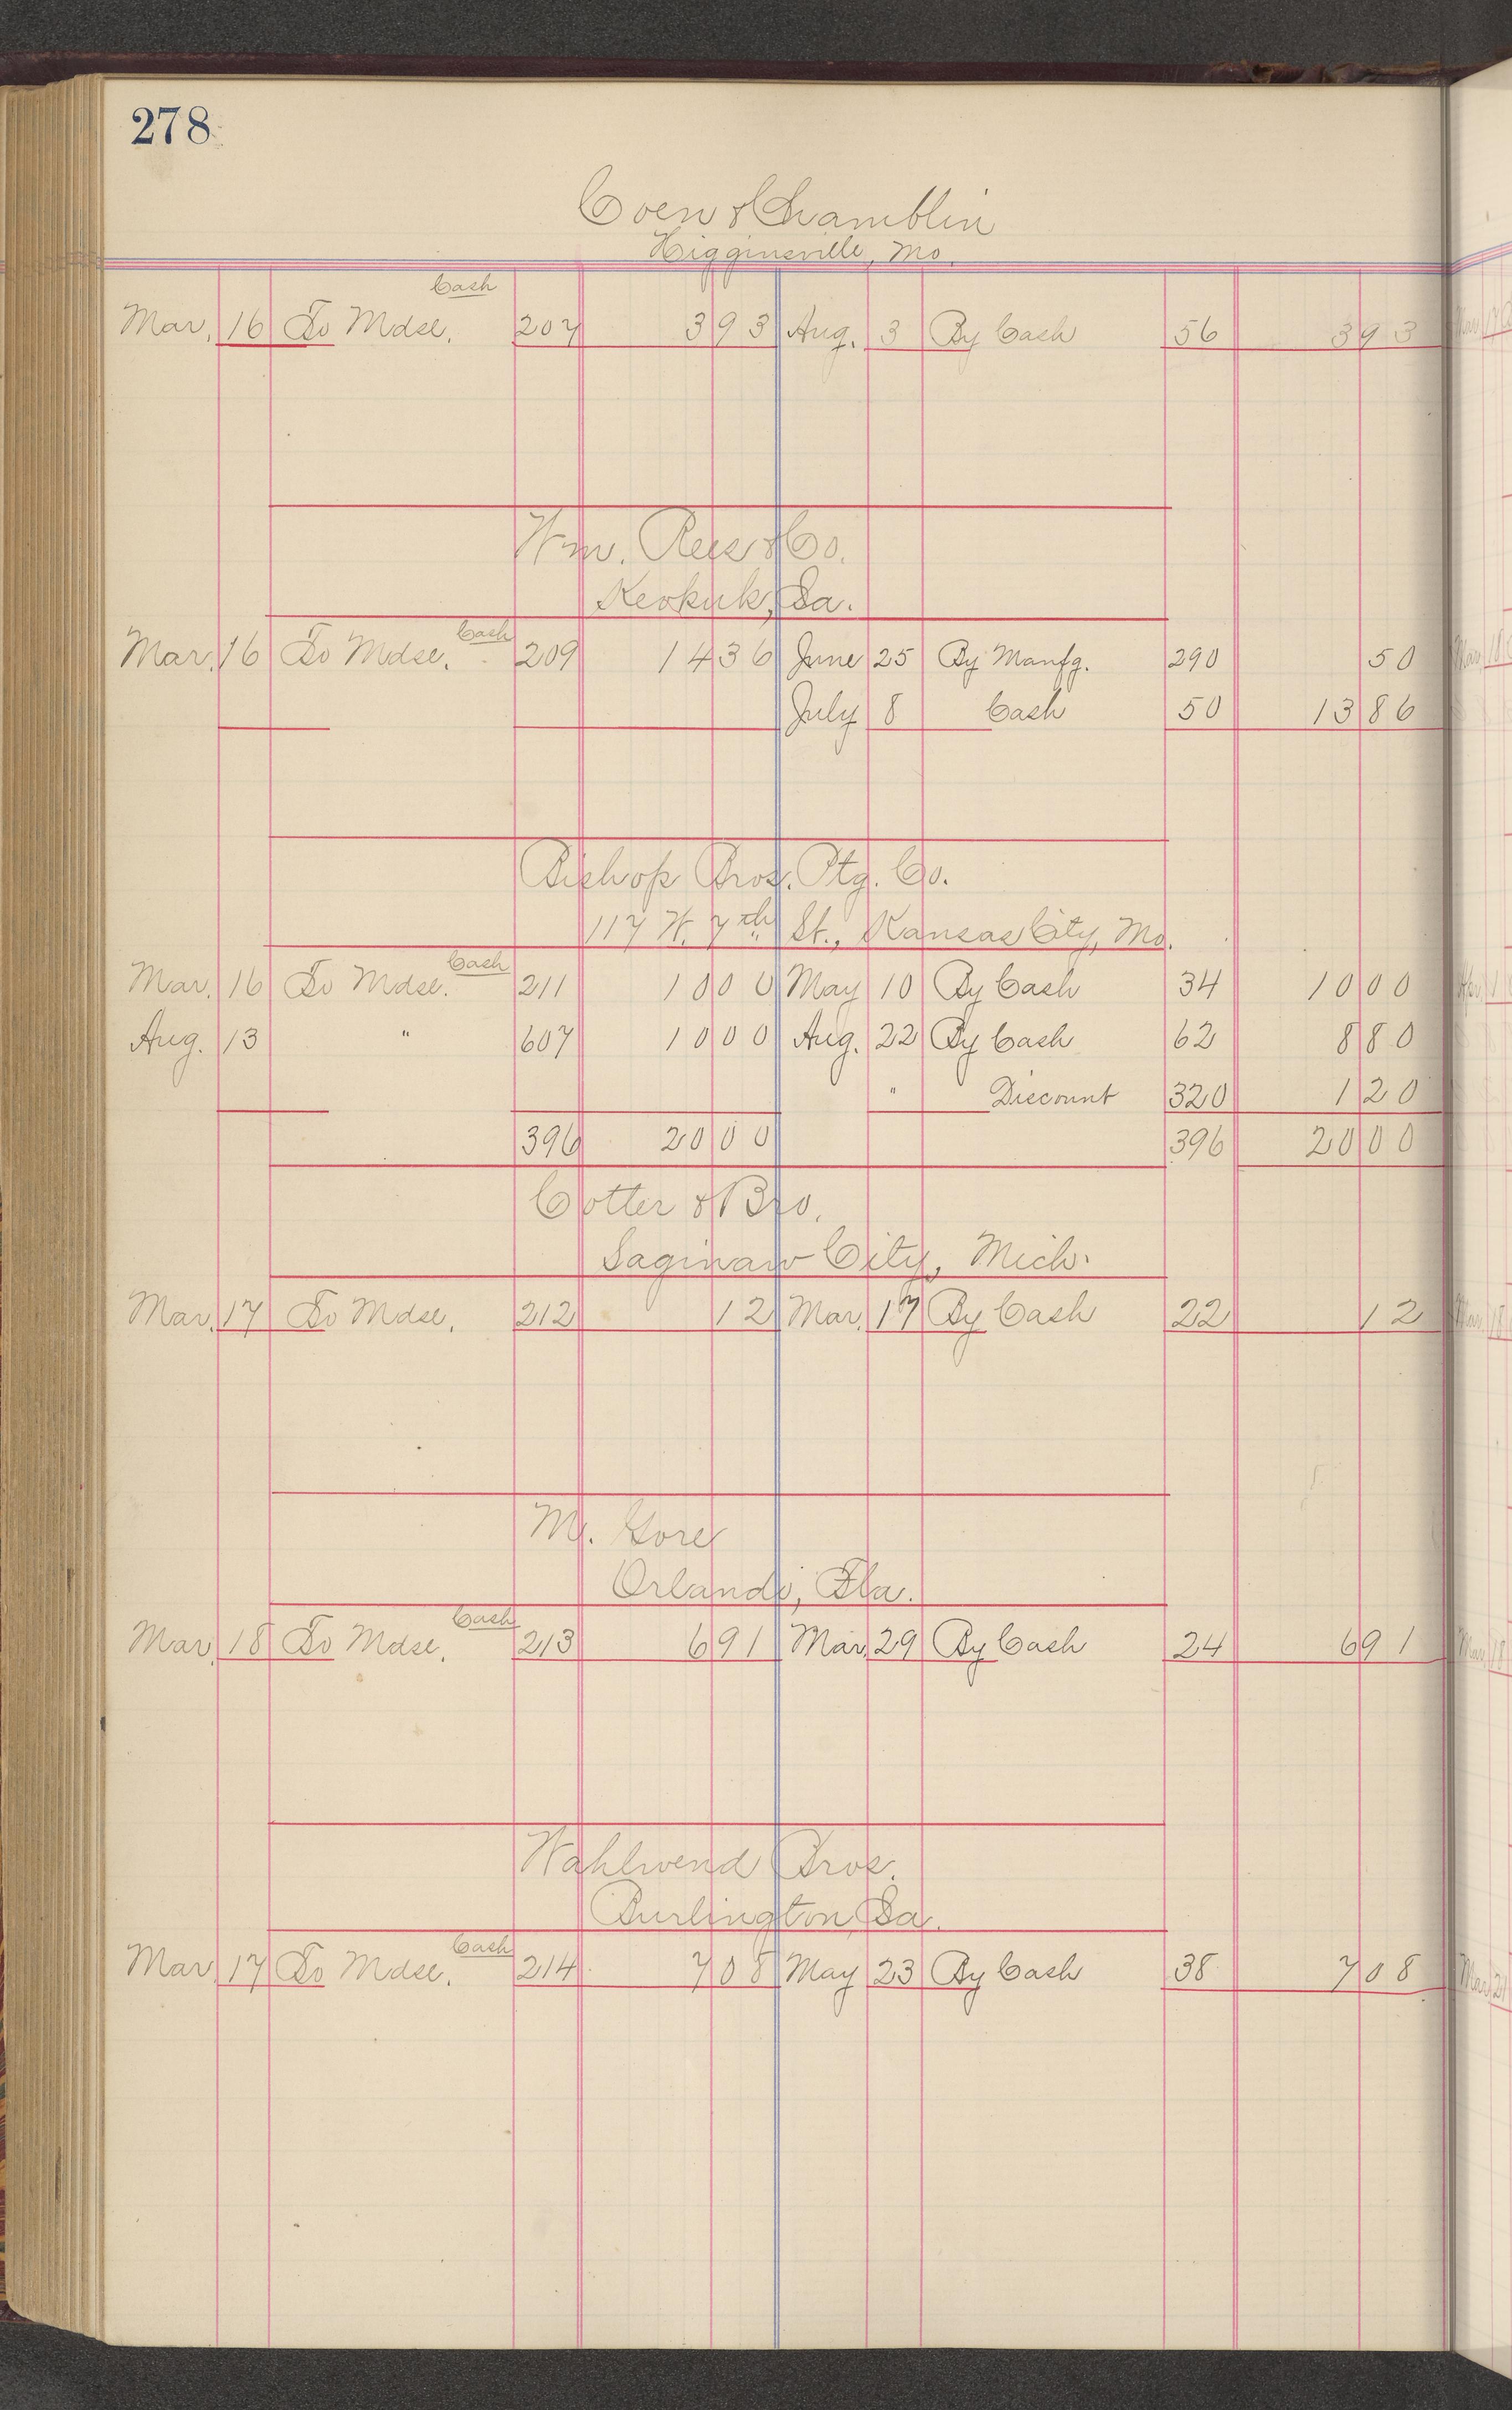 278
Coen & Chamblin
Higginsville, Mo.
Cash
Mar. 16 To Mdse. 207 3 93 Aug. 3 By Cash 56 3 93
Wm. Rees & Co.
Keokuk, Ia.
Cash
Mar. 16 To Mdse. 209 14 36 June 25 By Manfg. 290 50
July 8 Cash 50 13 86
Bishop Bros. Ptg. Co.
117 W. 7th St., Kansas City, Mo.
Cash
Mar. 16 To Mdse. 211 10 00 May 10 By Cash 34 10 00
Aug. 13 " 607 10 00 Aug. 22 By Cash 62 8 80
" Discount 320 1 20
396 20 00 396 20 00
Cotter & Bro.
Saginaw City, Mich.
Mar. 17 To Mdse. 212 12 Mar. 17 By Cash 22 12
M. Gore
Orlando, Fla.
Cash
Mar. 18 To Mdse. 213 6 91 Mar. 29 By Cash 24 6 91
Wahlwend Bros.
Burlington, Ia.
Cash
Mar. 17 To Mdse. 214 7 08 May 23 By Cash 38 7 08